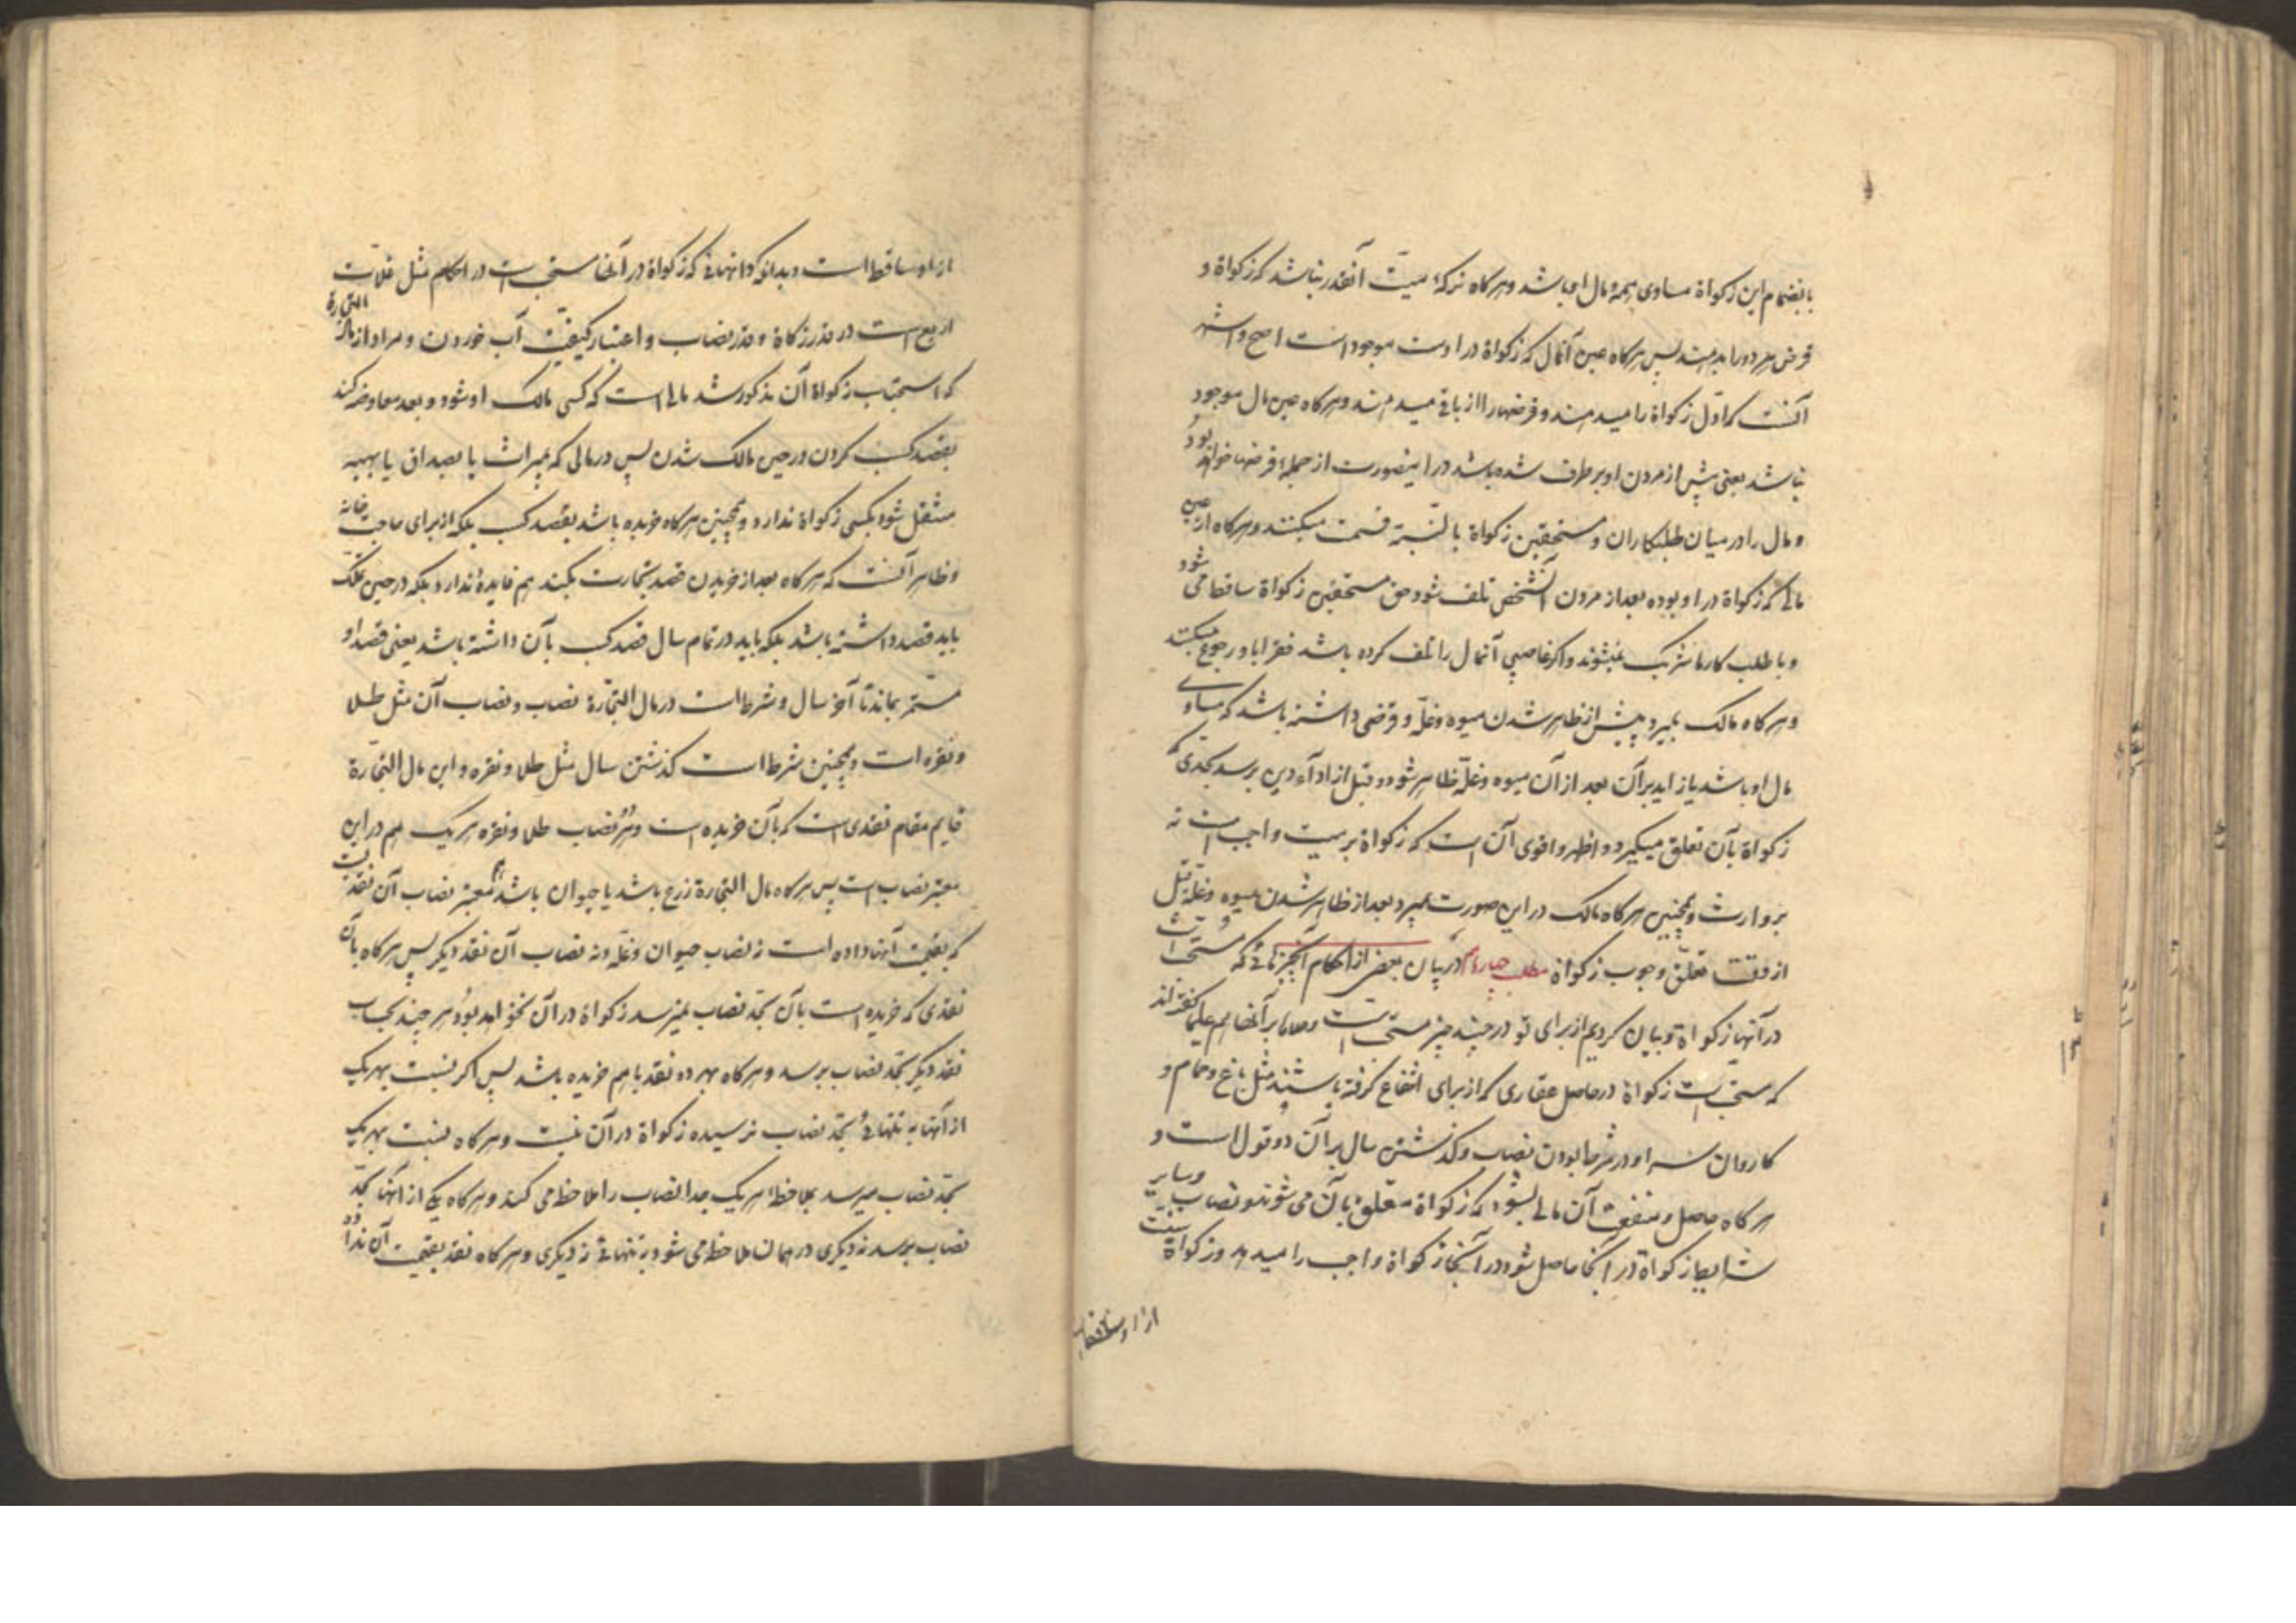 بانضمام این زکواة مساوی همه مال او باشد و هرگاه ترکهٔ میّت آنقدر نباشد که زکواة و
قرض هر دو را بدهند پس هرگاه عین آنمال که زکواة در اوست موجود است اصح و اشهر
آنست که اوّل زکواة را میدهند و قرضها را از باقی میدهند و هرگاه عین مال موجود
نباشد یعنی پیش از مردن او برطرف شده باشد در اینصورت از جملهٔ قرضها خواهد بود
و مال را در میان طلبکاران و مستحقین زکواة بالنّسبة قسمت میکنند و هرگاه از عین
مالی که زکواة در او بوده بعد از مردن آنشخص تلف شود حق مستحقین زکواة ساقط می شود
و با طلب کارها شریک نمیشوند و اگر غاصبی آنمال را تلف کرده باشد فقرا باو رجوع میکنند
و هرگاه مالک بمیرد پیش از ظاهر شدن میوه و غلّه و قرضی داشته باشد که مساوی
مال او باشد یا زاید بر آن بعد از آن میوه و غلّه ظاهر شود و قبل از ادآء دین برسد بحدّی که
زکواة بآن تعلق میگیرد و اظهر و اقوی آن است که زکواة بر میت واجب است نه
بر وارث و همچنین هرگاه مالک در این صورت بمیرد بعد از ظاهر شدن میوه و غلّه قبل
از وقت تعلّق وجوب زکواة مطلب چهارم در بیان بعضی از احکام آنچیزهائی که مستحب است
در آنها زکواة و بیان کردیم از برای تو در چند چیز مستحب است و علما بر آنها هم گفته‌اند
که مستحب است زکواة در حاصل عقاری که از برای انتفاع گرفته باشند مثل باغ و حمام و
کاروان سرا و در شرط بودن نصاب و گذشتن سال بر آن دو قول است و
هرگاه حاصل و منفعت آن مالی بشود که زکواة متعلق بآن می شود و نصاب و سایر
شرایط زکواة در آنجا حاصل شود در آنجا زکواة واجب را میدهد و زکواة سنّت
از او ساقط است
از او ساقط است و بدانکه دانهائی که زکواة در آنها مستحب است در احکام مثل غلّات
اربع است در قدر زکاة و قدر نصاب و اعتبار کیفیّت آب خوردن و مراد از مال التجارة
که استحباب زکواة آن مذکور شد مالی است که کسی مالک او شود و بعد معاوضه کند
بقصد کسب کردن در حین مالک شدن پس در مالی که بمیراث یا بصداق یا بهبه
منتقل شود بکسی زکواة ندارد و همچنین هرگاه خریده باشد بقصد کسب بلکه از برای صاحب خانه
و ظاهر آنست که هرگاه بعد از خریدن قصد تجارت بکند هم فایدهٔ ندارد بلکه در حین تملّک
باید قصد داشته باشد بلکه باید در تمام سال قصد کسب بآن داشته باشد یعنی قصد او
مستمرّ بماند تا آخر سال و شرط است در مال التجّارة نصاب و نصاب آن مثل طلا
و نقره است و همچنین شرط است گذشتن سال مثل طلا و نقره و این مال التجّارة
قایم مقام نقدی است که بآن خریده است و نصاب طلا و نقره هر یک هم در این
معتبر نصاب است پس هرگاه مال التجارة زرع باشد یا حیوان باشد معتبر نصاب آن نقدیست
که بقیمت آنها داده است نه نصاب حیوان و غلّه و نه نصاب آن نقد دیگر پس هرگاه بآن
نقدی که خریده است بآن بحدّ نصاب نمیرسد زکواة در آن نخواهد بود هر چند بحساب
نقد دیگر بحدّ نصاب برسد و هرگاه بهر دو نقد باهم خریده باشد پس اگر نسبت بهر یک
از آنها به تنهائی بحدّ نصاب نرسیده زکواة در آن نیست و هرگاه نسبت بهر یک
بحدّ نصاب میرسد بملاحظهٔ هر یک جدا نصاب را ملاحظه می کند و هرگاه یکی از آنها بحدّ
نصاب برسد نه دیگری در همان ملاحظه می شود به تنهائی نه دیگری و هرگاه نقد بقیمت آن نداده